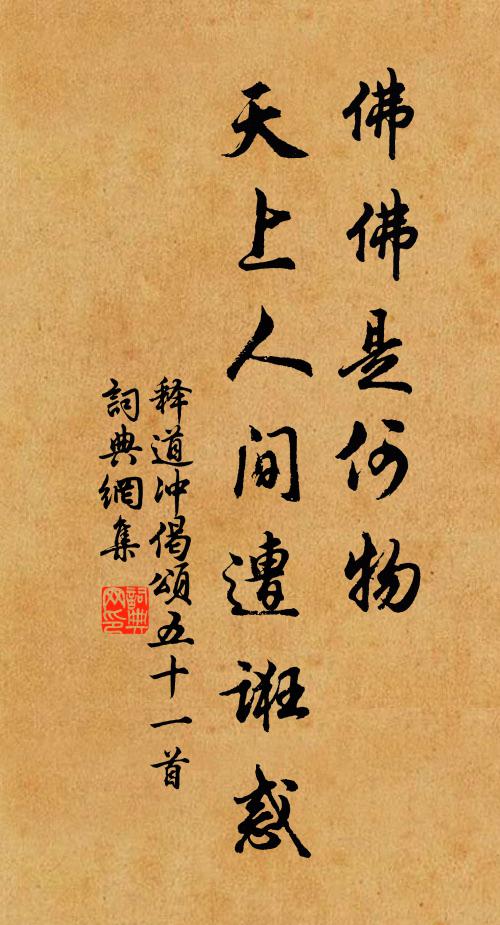 佛佛是何物
天上人间遭诳惑
释道冲偈颂五十一首
詞典網集
詞典
网印